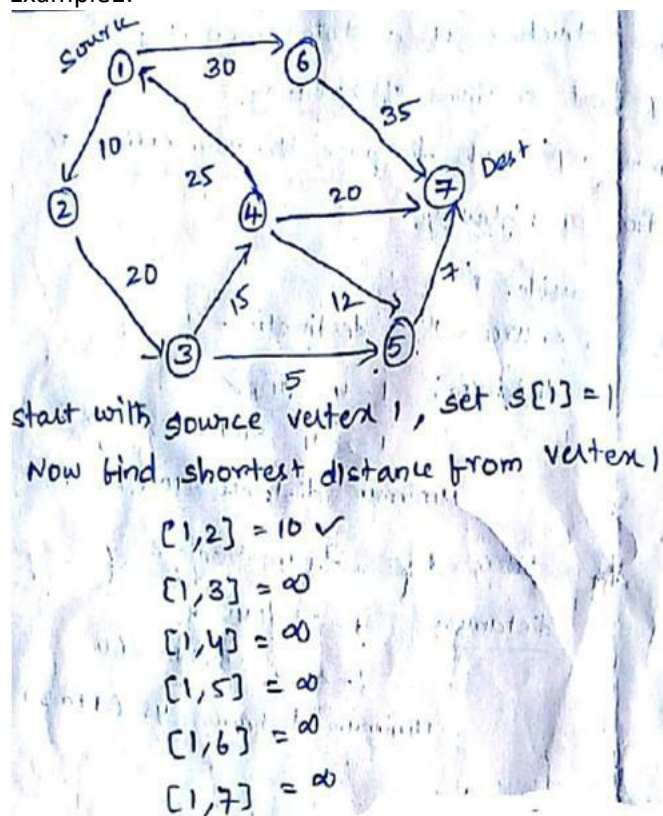 Example1:
Source
1
30
6
10
35
25
2
4
20
7
Dest
20
15
12
7
3
5
5
start with source vertex 1, set s[1]=1
Now find shortest distance from vertex 1
[1,2] = 10 ✓
[1,3] = ∞
[1,4] = ∞
[1,5] = ∞
[1,6] = ∞
[1,7] = ∞